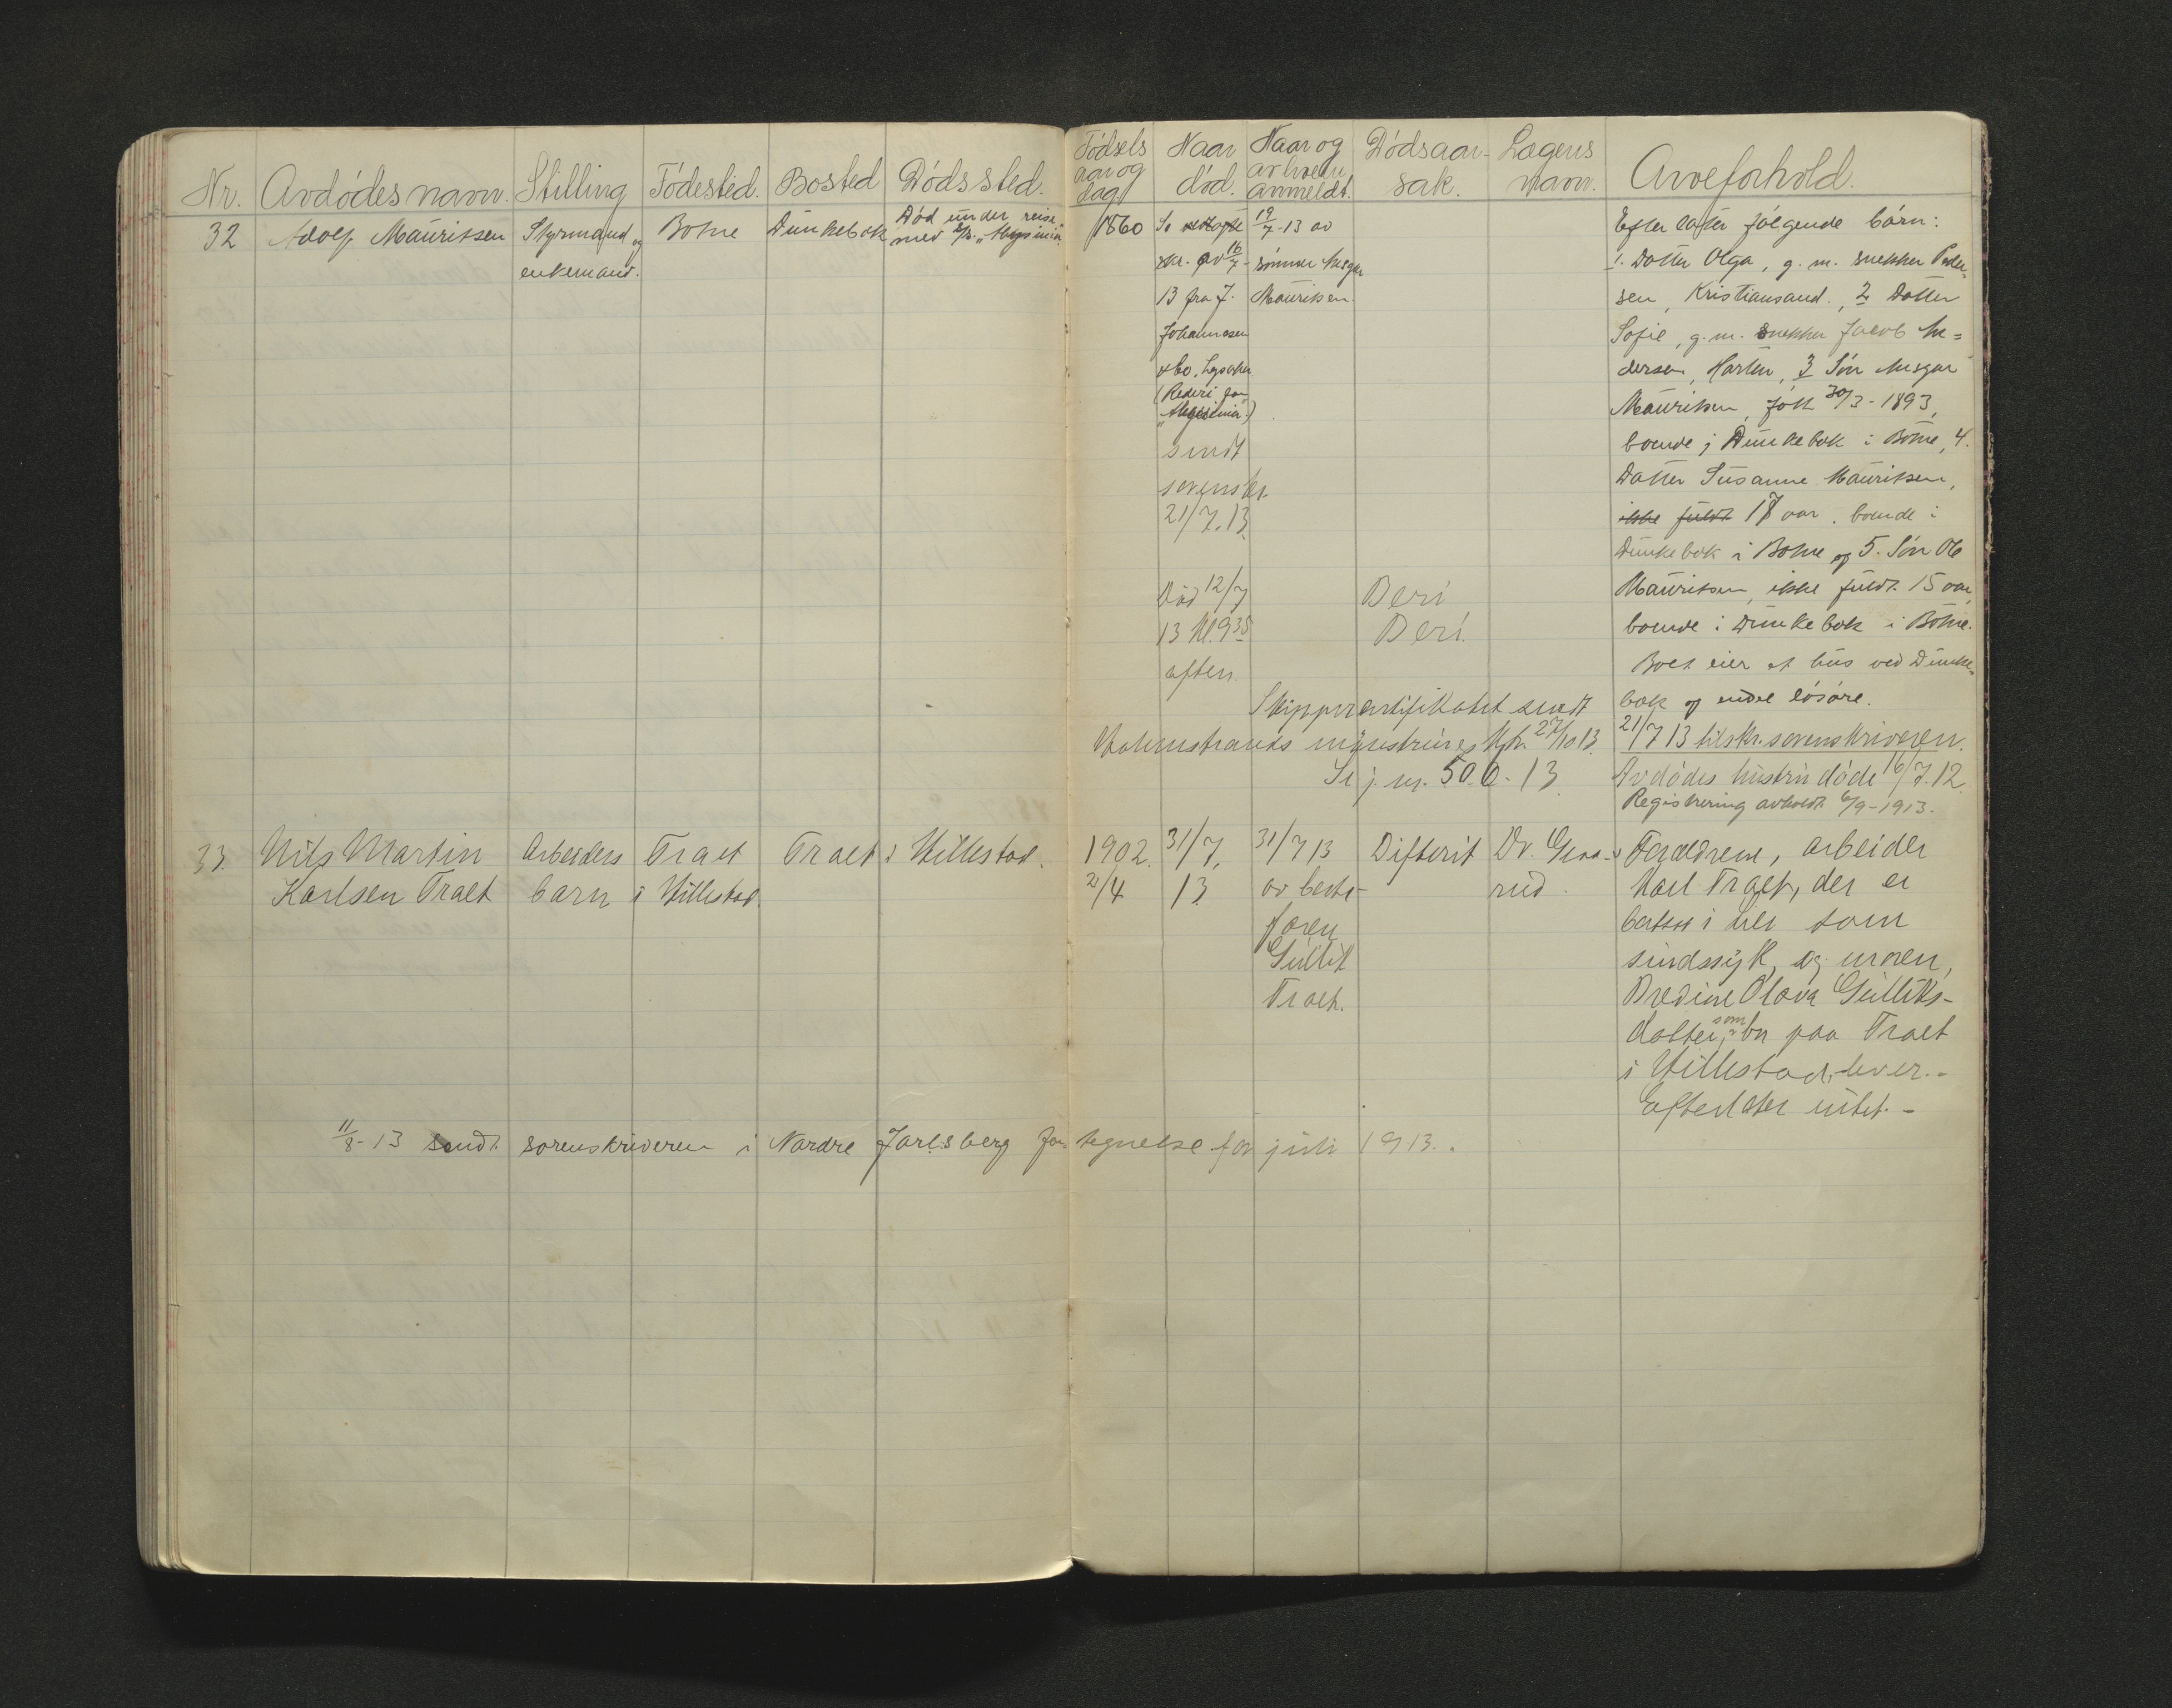 Nr. Avdødes navn. Stilling Fødested. Bosted Dødssted. Fødsels aar og dag Naar død. Naar og av hvem anmeldt. Dødsaarsak. Lægens navn. Arveforhold.
32 Adolf Mauritsen Styrmand og enkemand. Botne Dunkebek
Død under reise
med
1860
Se
skr. av 16/7-
13 fra J.
Johannesen
& Co. Lysaker
(Rederi for
sendt
sorenskr.
21/7.13.
Død 12/7
13 kl 9 35
aften.
19/7-13 av
sønnen Ansgar
Mauritsen.
Beri
Beri
Efterlater følgende børn:
1. Datter Olga, g. m. snekker Peder=
sen, Kristiansand., 2 Datter
Sofie, g. m. snekker Jacob An=
dersen, Horten, 3 Søn Ansgar
Mauritsen, født 30/3-1893,
boende i Dunkebek i Botne, 4.
Datter Susanne Mauritsen,
ikke fuldt 17 aar. boende i
Dunkebek i Botne og 5. Søn Ole
Mauritsen, ikke fuldt 15 aar,
boende i Dunkebek i Botne.
Boet eier et hus ved Dunke=
bek og endel løsøre.
21/7 13 tilskr. sorenskriveren.
Avdødes hustru døde 16/7.12.
Registrering avholdt 6/9-1913.
Skippercertifikatet sendt
Holmestrands mønstrings ktr. 27/10 13.
Se j. nr. 500-13.
33. Nils Martin
Karlsen Traet
Arbeiders
barn
Traet
i Hillestad.
Traet i Hillestad.
1902.
2/4
31/7.
13.
31/7 13
av beste-
faren
Gullik
Traet.
Difterit
Dr. Graa-
rud.
Forældrene, arbeider
Karl Traet, der er
bortsat i pleie som
sindssyk, og moren,
Bredine Olava Gulliks-
datter, som bor paa Traet
i Hillestad, lever.-
Efterlater intet.-
11/8-13 sendt sorenskriveren i Nordre Jarlsberg fortegnelse for juli 1913.